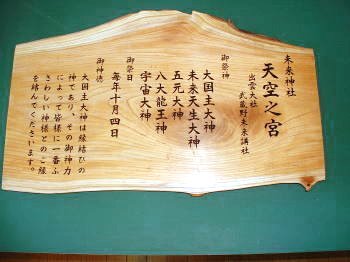 未来神社
天空之宮
出雲大社
武蔵野未来講社
御祭神
大国主大神
未来天生大神
五元大神
八大龍王神
宇宙大神
御祭日
毎年十月四日
御神徳
大国主大神は縁結びの
神であり、その御神力
によって皆様に一番ふ
さわしい神様とのご縁
を結んでくださいます。